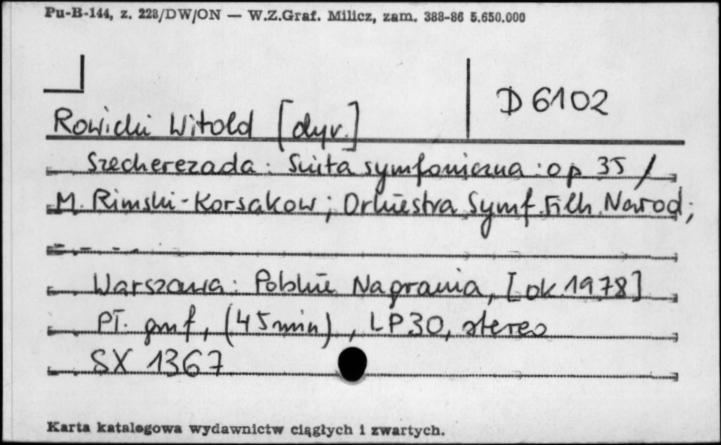 Pu-B-144, z. 228/DW/ON — W.Z.Graf. Milicz, zam. 388-86 5.650.000
D 6102
Rowicki Witold [dyr.]
Szecherezada : Suita symfoniczna : op 35 /
M. Rimski-Korsakow ; Orkiestra Symf. Filh. Narod ;
Warszawa : Polskie Nagrania, [ok. 1978]
Pł. gmf, (45 min), LP30, stereo
SX 1367
Karta katalogowa wydawnictw ciągłych i zwartych.